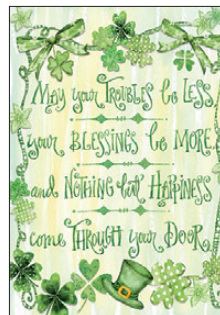 May your Troubles be Less,
your Blessings be More,
and Nothing but Happiness
come Through your Door